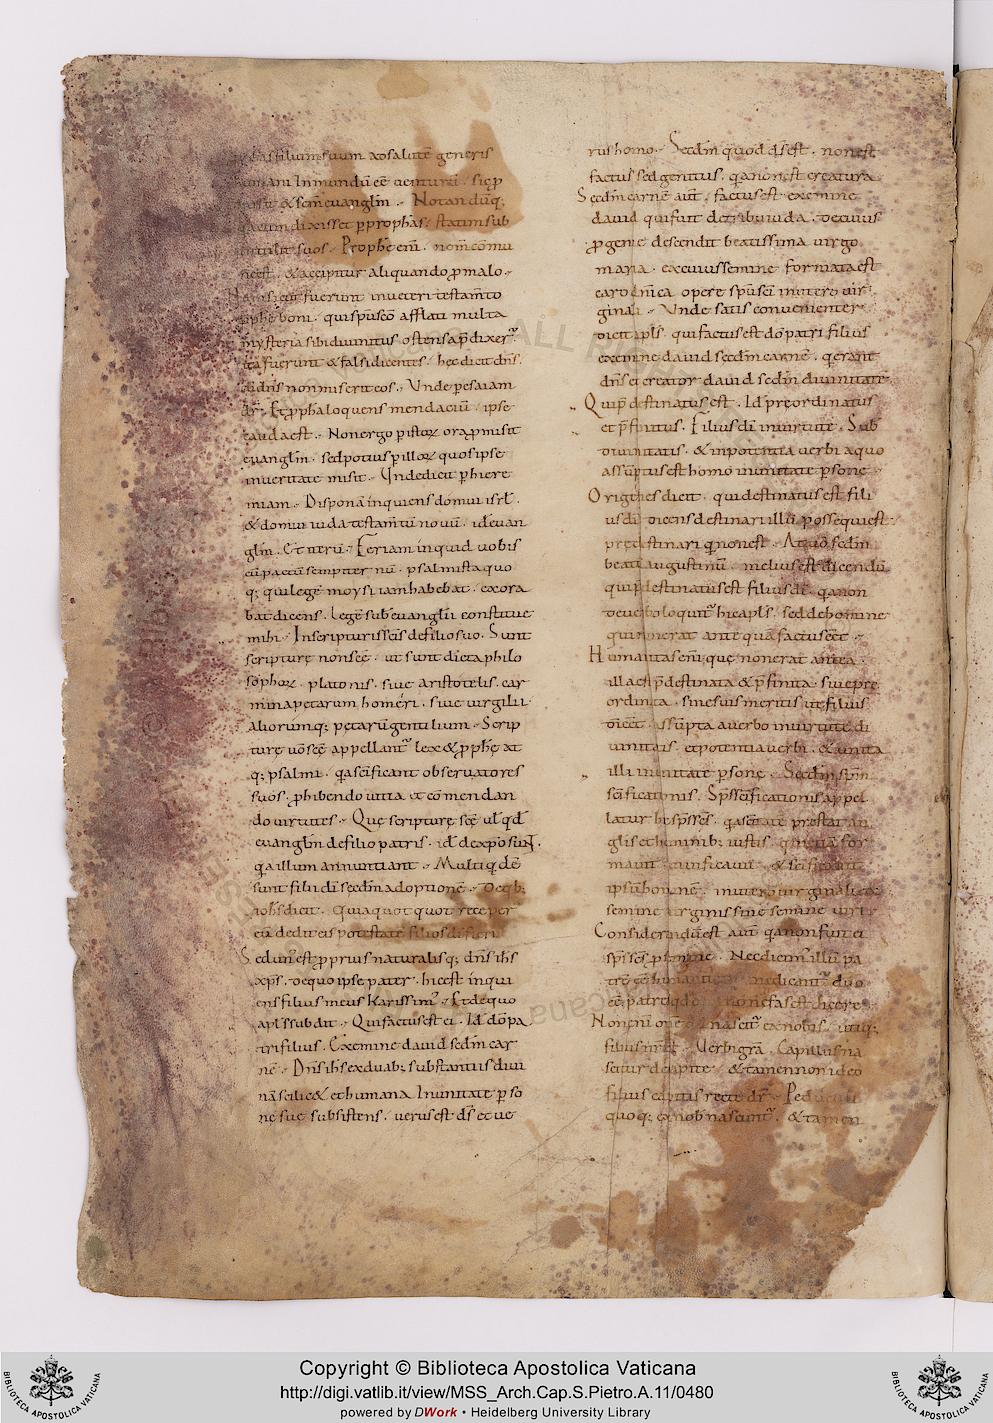 filium suum ad salutē generis
humani In mundū eē venturū. sic p̱
& sem̄ euanglm̄. Notandūq;
dixisset p̱ proph&as. statim sub
intulit suos. Proph&e eni. nom̄ cōmu
ne est. & accipitur aliquando p̱ malo.
Nam sicut fuerunt in ueteri testam̄to
p̱ph&e boni. qui sp̄u scō afflati multa
mysteria sibi diuinitus ostensa p̄dixer̄.
ita fuerunt & falsi dicentes. hęc dicit dn̄s.
& dn̄s non miserit eos. Unde p̱ esaiam
dr̄. Et p̱ph&a loquens mendaciū. ipse
cauda est. Non ergo p̱ istoꝝ ora p̱misit
euanglm̄. sed potius p̱ illoꝝ quos ipse
in ueritate misit. Unde dicit p̱ hiere
miam. Disponā inquiens domui isrl̄.
& domui iuda testam̄tū nouū. id ē euan
glm̄. Et iterū. Feriam inquid uobis
cū pactū sempiternū. psalmista quo
q; qui legē moysi iam habebat. exora
bat dicens. legē sub euanglii constitue
mihi. In scripturis scīs de filio suo. Sunt
scripturę non scę. ut sunt dicta philo
sophoꝝ. platonis. siue aristotelis. car
mina poetarum homeri. siue uirgilii
aliorumq; poetarū gentilium. Scrip
turę uō scę appellant̄ lex & p̱ph&ę at
q; psalmi. q̄a scīficant obseruatores
suos. p̱hibendo uitia et cōmendan
do uirtutes. Quę scripturę scę ul̄ qd̄
euanglm̄ de filio patris. id ē dexpo sunt.
q̄a illum annuntiant. Multi q̄dē
sunt filii dī scdm̄ adoptionē. De qb;
ioh̄s dicit. Quia quotquot receper
eū dedit eis potestatē filios dī fieri
Sed unus est p̱prius naturalisq; dn̄s ih̄s
xp̄s. de quo ipse pater. hic est inqui
ens filius meus karissim'. Et de quo
apl̄s subdit. Qui factus est ei. Id ē dō pa
tri filius. Ex semine dauid scdm̄ car
nē. Dn̄s ih̄s ex duab; substantiis diui
nā scilic& et humana In unitate p̱so
nę suę subsistens. uerus est dš et ue
rus homo. Scdm̄ quod dš est. non est
factus sed genitus. q̄a non est creatura
Scdm̄ carnē aut̄. factus est ex semine
dauid qui fuit de tribu iuda. de cuius
p̱genie descendit beatissima uirgo
maria. ex cuius semine formata est
caro dn̄ica opere sp̄us scī in utero uir
ginali. Unde satis conuenienter
dicit apl̄s. qui factus est dō patri filius
ex semine dauid scdm̄ carnē. q̄ erant
dn̄s et creator dauid scdm̄ diuinitatē.
Qui p̄destinatus est. Id pręordinatus
et p̄finitus. Filius dī in uirtute. Sub
diuinitatis. & in potentia uerbi a quo
assūptus est homo in unitate p̱sonę.
Origenes dicit. qui destinatus est fili
us dī. dicens destinari illū posse qui est.
prędestinari q̄ non est. At uō scdm̄
beatū augustinū. melius est dicendū
qui p̄destinatus est filius dī. q̄a non
de uerbo loquit̄ hic apl̄s. sed de homine
qui non erat antequā factus ēēt.
Humanitas eni. quę non erat antea.
illa est p̄destinata & p̄finita. siue pre
ordinata. sine suis meritis ut filius
dī ēēt. assūpta a uerbo in uirtute dī
unitatis. et potentia uerbi. & unita
illi in unitate p̱sonę. Scdm̄ sp̄m
scīficationis. Sp̄s scīficationis appel
latur hic sp̄s scs̄. q̄a scītatē prestat an
glis et hominib; iustis. q̄ etiā for
mauit uiuificauit & scīficauit
ipsū hominē. in utero uirginali ex
semine uirginis sine semine uiri
Considerandū est aut̄ q̄a non sunt ei
sp̄s scs̄ p̱ carne. Nec dicim' illū pa
trē ēē ne dicant̄ duo
eē patres qd̄ non fas est dicere.
Non eni omne qd̄ nascit̄ ex nobis. utiq;
filius nr̄ est. Uerbi grā. Capillus na
scitur de capite. & tamen non ideo
filius capitis recte dr̄. Peduculi
quoq; ex nob nascunt̄. & tamen
Copyright © Biblioteca Apostolica Vaticana
http://digi.vatlib.it/view/MSS_Arch.Cap.S.Pietro.A.11/0480
powered by DWork • Heidelberg University Library
BIBLIOTECA APOSTOLICA VATICANA
BIBLIOTECA APOSTOLICA VATICANA